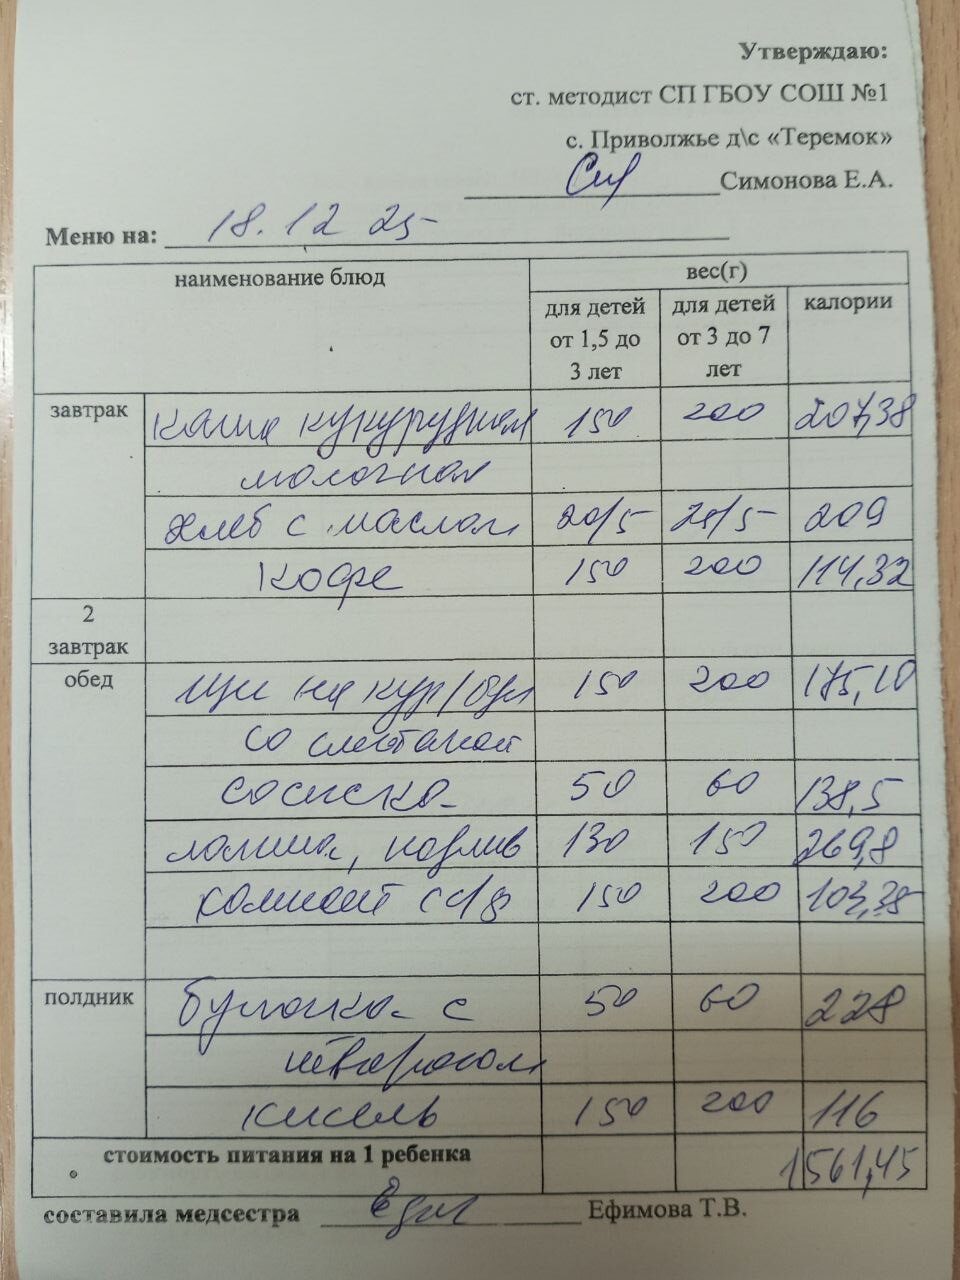 Утверждаю:
ст. методист СП ГБОУ СОШ №1
с. Приволжье д\с «Теремок»
Симонова Е.А.
Меню на: 18.12 25
наименование блюд вес(г)
для детей от 1,5 до 3 лет для детей от 3 до 7 лет калории
завтрак каша кукурузная 150 200 207,38
молочная
хлеб с маслом 20/5 25/5 209
кофе 150 200 114,32
2 завтрак
обед щи на кур/бул 150 200 175,10
со сметаной
сосиска 50 60 138,5
лапша, подлив 130 150 269,8
компот с с/ф 150 200 103,35
полдник булочка с 50 60 228
творогом
кисель 150 200 116
стоимость питания на 1 ребенка 1561,45
составила медсестра Ефимова Т.В.